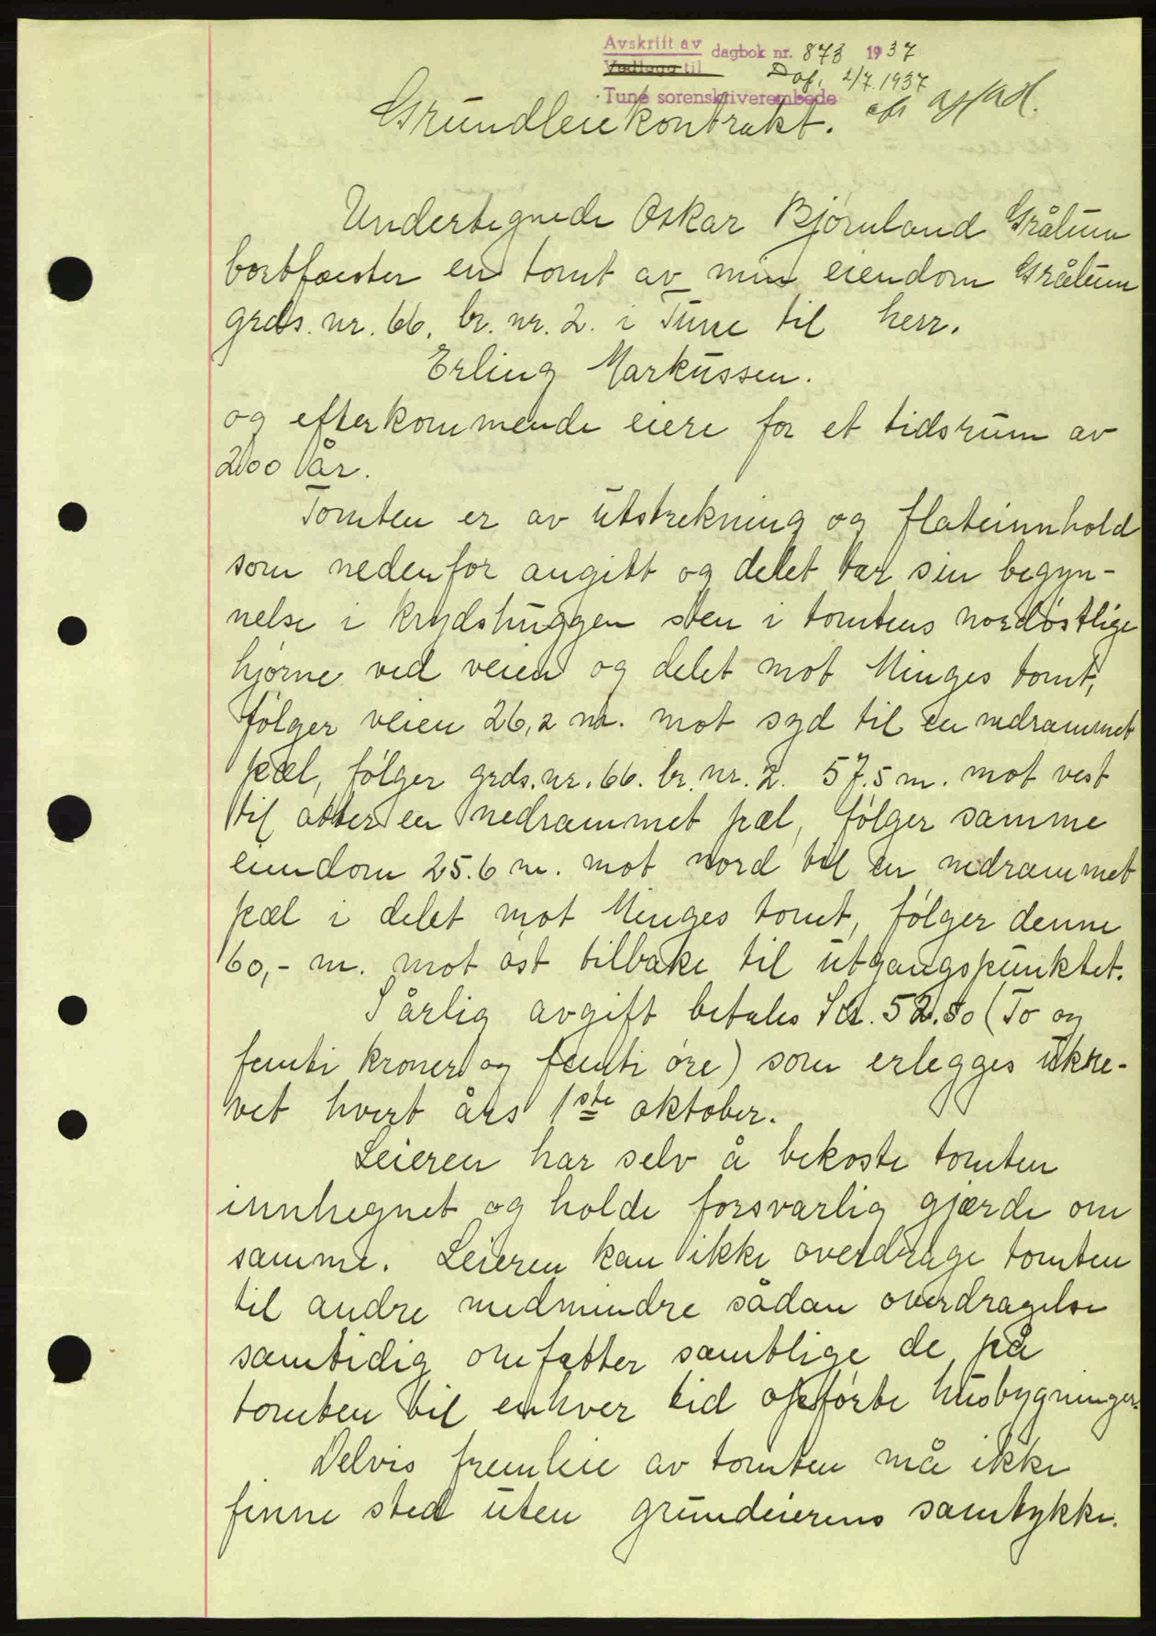 Avskrift av dagbok nr. 873 1937
Vedlegg til Daf. 2/7.1937
Tune sorenskriverembede
Grundleiekontrakt.
Undertegnede Oskar Bjørnland Grålum
bortfæster en tomt av min eiendom Grålum
grds. nr. 66, br. nr. 2. i Tune til herr.
Erling Markussen.
og efterkommende eiere for et tidsrum av
200 år.
Tomten er av utstrekning og flateinnhold
som nedenfor angitt og delet tar sin begyn-
nelse i krydshuggen sten i tomtens nordøstlige
hjørne ved veien og delet mot Minges tomt,
følger veien 26,2 m. mot syd til en nedrammet
pæl, følger grds. nr. 66. br. nr. 2. 57.5 m. mot vest
til atter en nedrammet pæl, følger samme
eiendom 25.6 m. mot nord til en nedrammet
pæl i delet mot Minges tomt, følger denne
60,- m. mot øst tilbake til utgangspunktet.
I årlig avgift betales Kr. 52.50 (To og
femti kroner og femti øre) som erlegges ukre-
vet hvert års 1ste oktober.
Leieren har selv å bekoste tomten
innhegnet og holde forsvarlig gjærde om
samme. Leieren kan ikke overdrage tomten
til andre medmindre sådan overdragelse
samtidig omfatter samtlige de på
tomten til enhver tid opførte husbygninger.
Delvis fremleie av tomten må ikke
finne sted uten grundeierens samtykke.